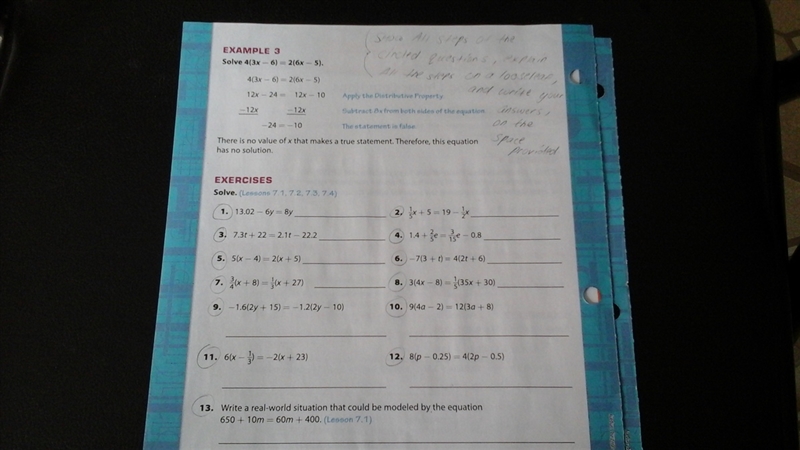 Show All steps of the
EXAMPLE 3
circled questions, explain
Solve 4(3x − 6) = 2(6x − 5).
All the steps on a looseleaf,
4(3x − 6) = 2(6x − 5)
and write your
12x − 24 = 12x − 10 Apply the Distributive Property.
answers,
−12x −12x Subtract from both sides of the equation.
on the
−24 = −10 The statement is false.
space
There is no value of x that makes a true statement. Therefore, this equation
provided
has no solution.
EXERCISES
Solve. (Lessons 7.1, 7.2, 7.3, 7.4)
1. 13.02 − 6y = 8y
2. 1/5x + 5 = 19 − 1/2x
3. 7.3t + 22 = 2.1t − 22.2
4. 1.4 + 2/5e = 3/15e − 0.8
5. 5(x − 4) = 2(x + 5)
6. −7(3 + t) = 4(2t + 6)
7. 3/4(x + 8) = 1/3(x + 27)
8. 3(4x − 8) = 1/5(35x + 30)
9. −1.6(2y + 15) = −1.2(2y − 10)
10. 9(4a − 2) = 12(3a + 8)
11. 6(x − 1/3) = −2(x + 23)
12. 8(p − 0.25) = 4(2p − 0.5)
13. Write a real-world situation that could be modeled by the equation
650 + 10m = 60m + 400. (Lesson 7.1)